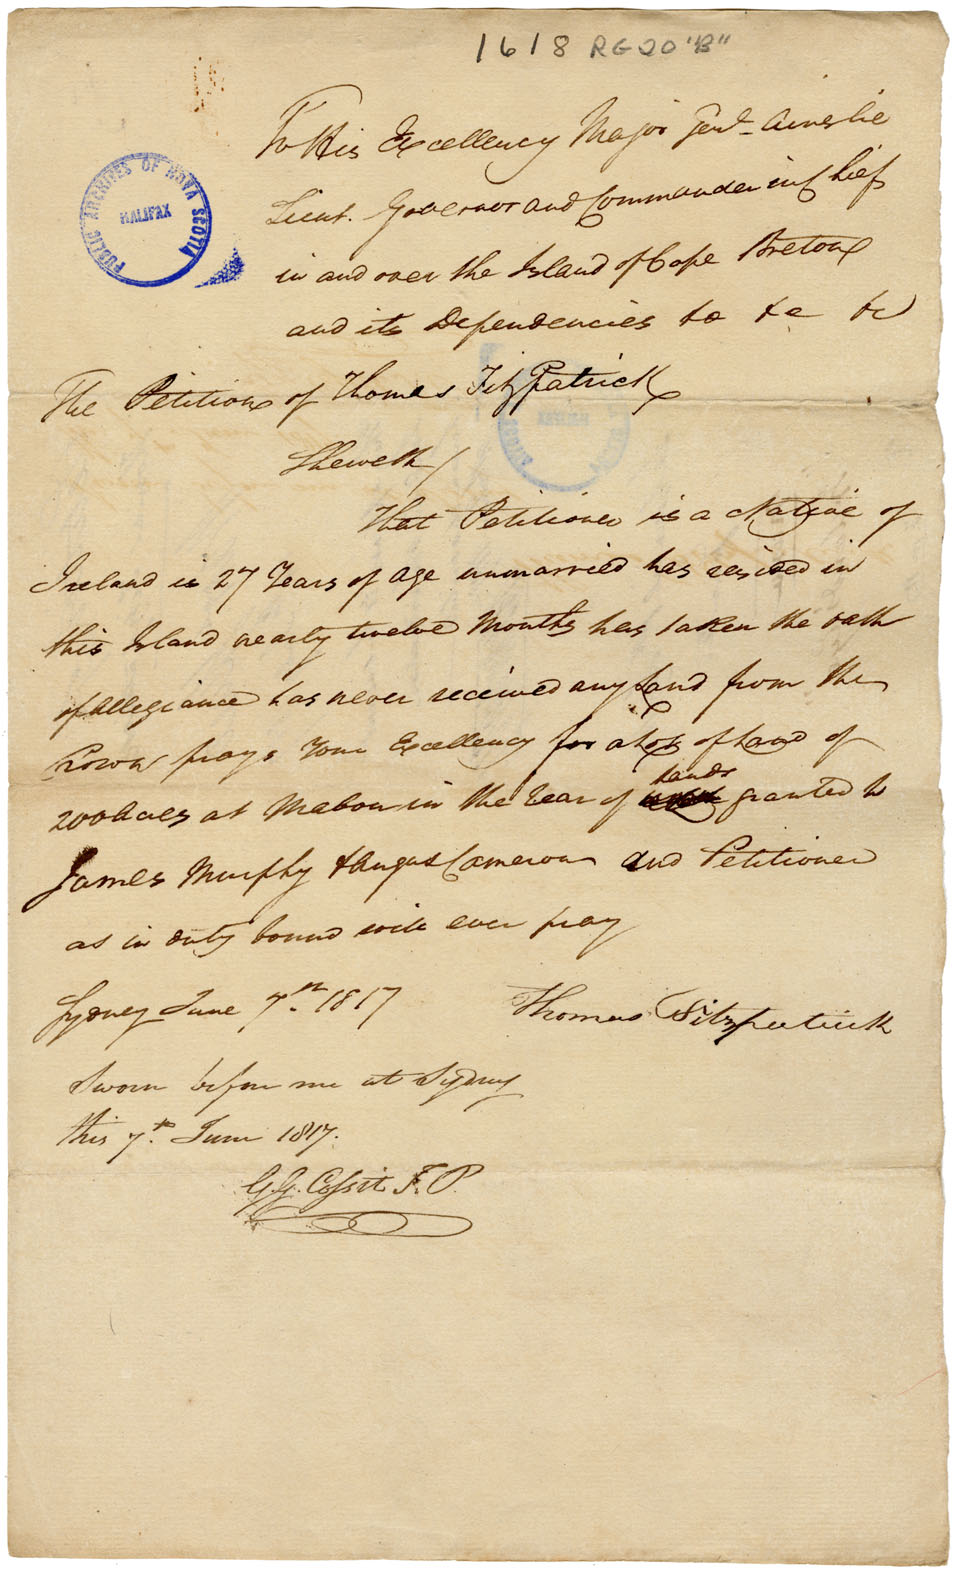 1618 RG20 "B"
To His Excellency Major Genl. Ainslie
PUBLIC ARCHIVES OF NOVA SCOTIA
HALIFAX
Lieut. Governor and Commander in Chief
in and over the Island of Cape Breton
and its Dependencies &c &c &c
The Petition of Thomas FitzPatrick
Sheweth/
That Petitioner is a Native of
Ireland is 27 Years of age unmarried has resided in
this Island nearly twelve Months has taken the oath
of allegiance has never received any Land from the
Crown prays Your Excellency for a lot of Land of
lands
200 Acres at Mabou in the Rear of granted to
James Murphy & Angus Cameron and Petitioner
as in duty bound will ever pray
Sydney June 7th 1817
Thomas Fitzpatrick
Sworn before me at Sydney
this 7th June 1817.
G.G. Cossit J.P.